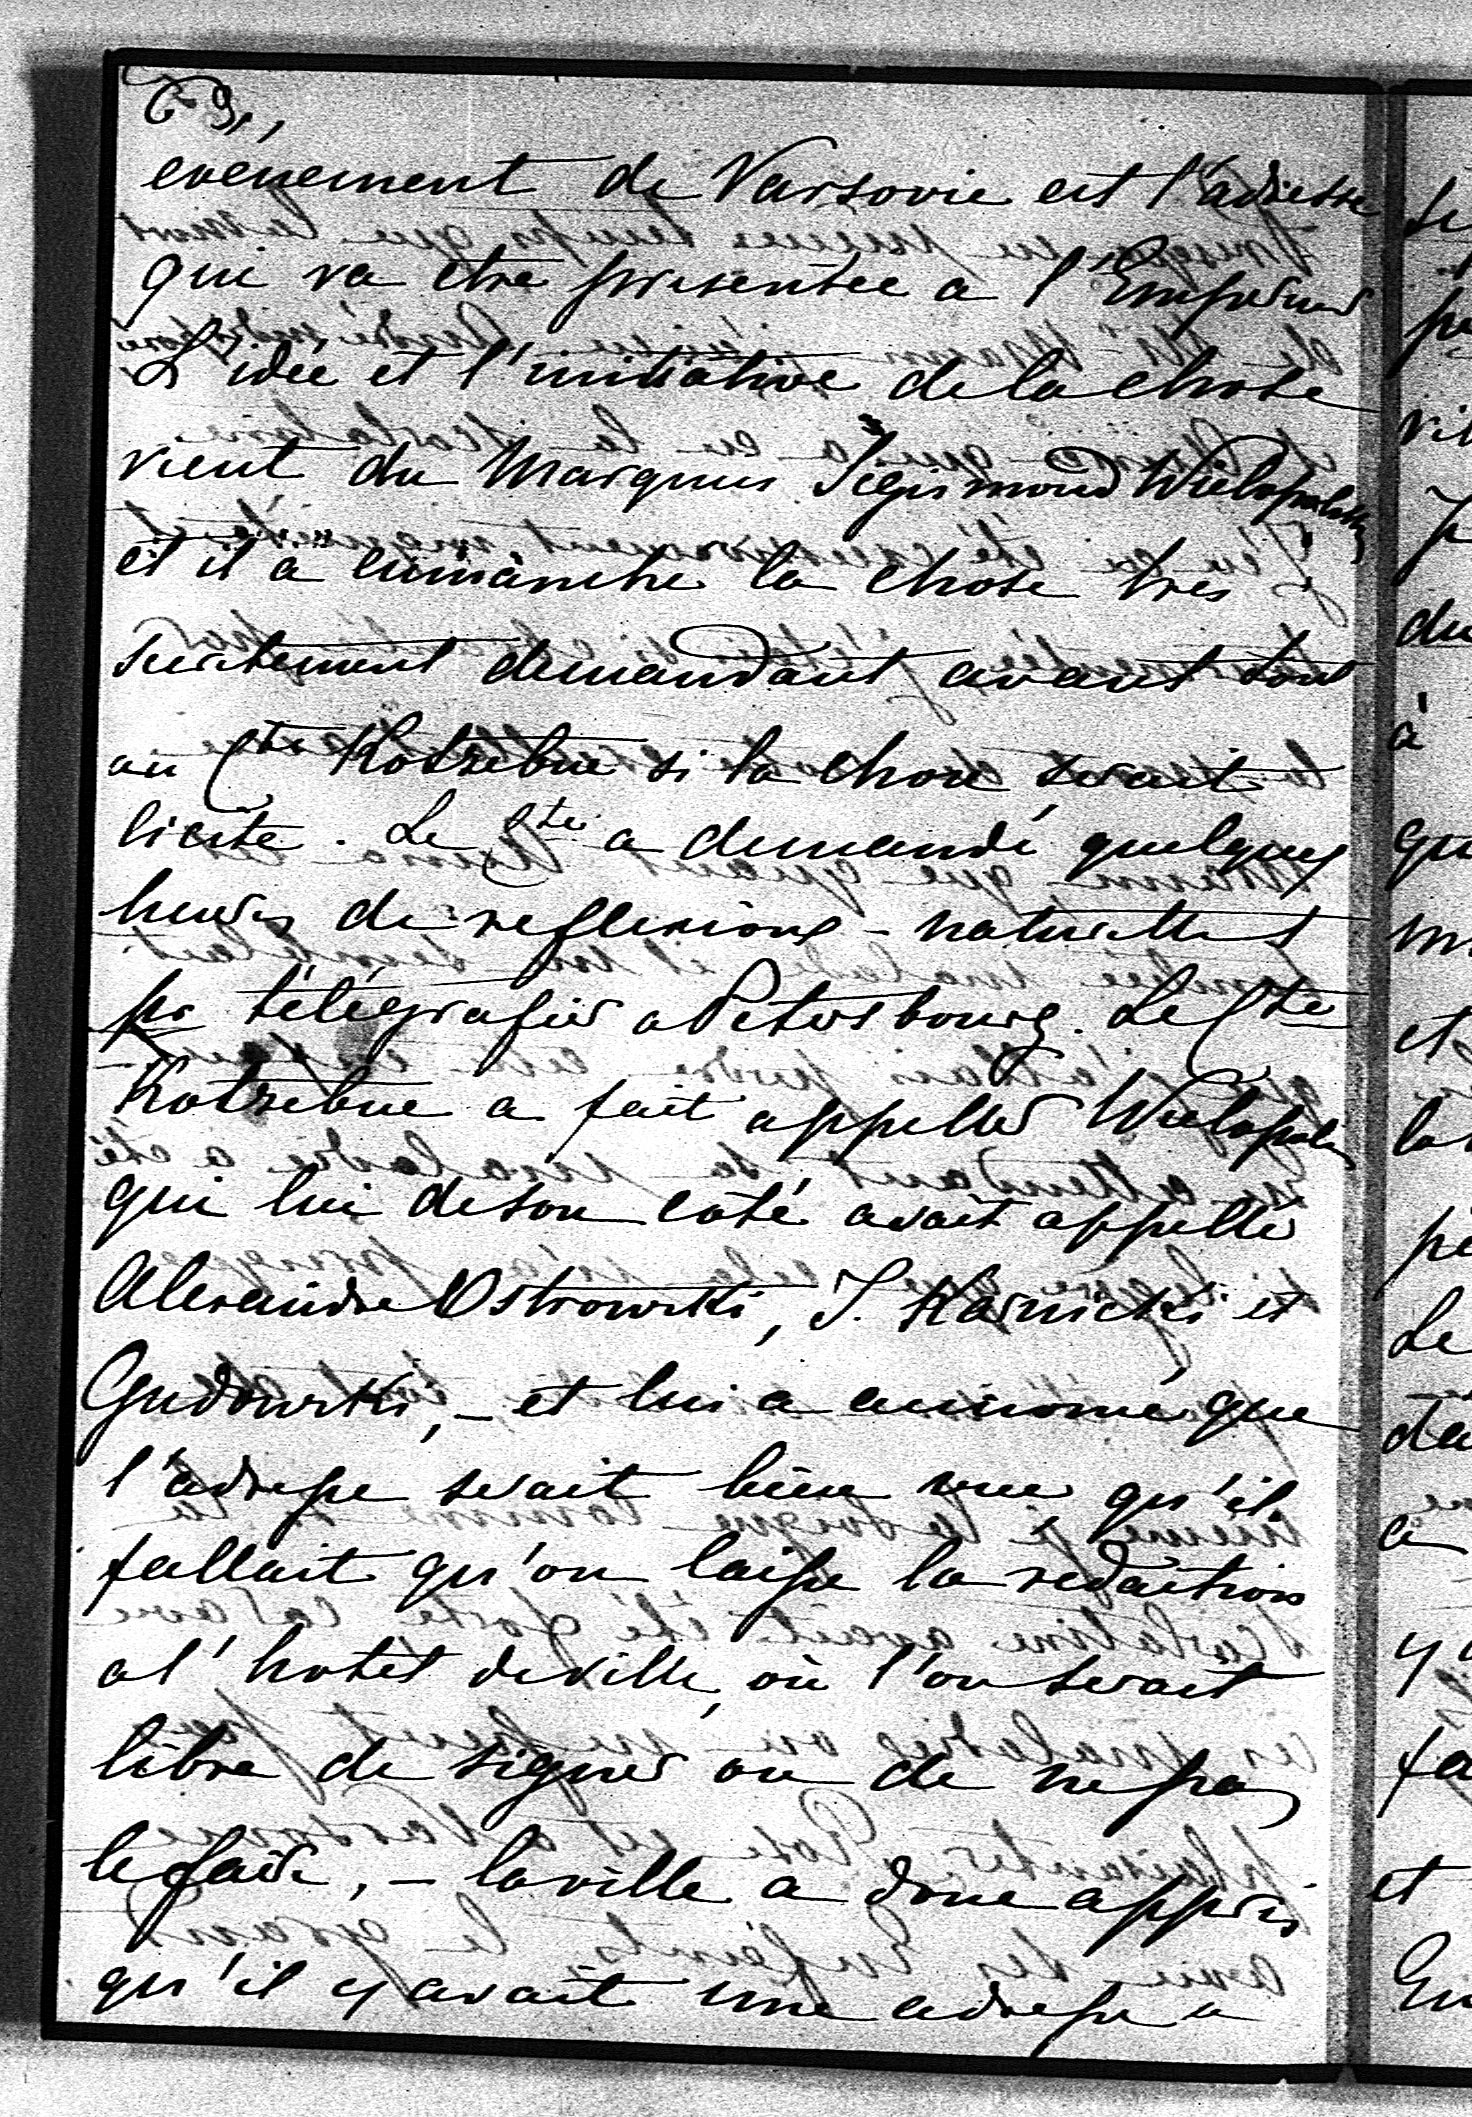 evenement de Varsovie est l'adresse
qui va être presentée a l'Empereur
L'idée et l'initiative de la chose
vient du Marquis Sigismond Wielopolski
et il a emmanché la chose très
surtement demandant avant tout
au Cte Kotzebue si la chose serait
licite. Le Cte a demandé quelques
heures de reflexions - naturellet
pr télégrafier a Petersbourg. Le Cte
Kotzebue a fait appeller Wielopolski
qui lui de son coté avait appellé
Alexandre Ostrowski, J. Karnicki et
Gudowski, - et lui a annoncé que
l'adresse serait bien vue qu'il
fallait qu'on laisse la redaction
a l'hotel de ville, où l'on serait
libre de signer ou de ne pas
le faire, - la ville a donc appris
qu'il y avait une adresse a